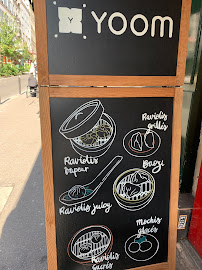 YOOM
Raviolis
grillés
Raviolis
Vapeur
Bazi
Raviolis juicy
Mochis
glacés
Raviolis
sucrés